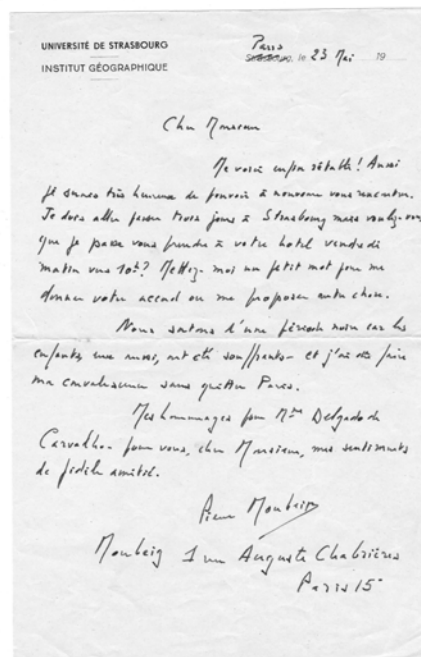 UNIVERSITÉ DE STRASBOURG
INSTITUT GÉOGRAPHIQUE
Paris
Strasbourg, le 23 Mai 19
Cher Monsieur
Me voici enfin rétabli ! Aussi
je serais très heureux de pouvoir à nouveau vous rencontrer.
Je dois aller passer trois jours à Strasbourg mais voulez-vous
que je passe vous prendre à votre hotel vendredi
matin vers 10h? Mettez-moi un petit mot pour me
donner votre accord ou me proposer autre chose.
Nous sortons d'une période noire car les
enfants, eux aussi, ont été souffrants - et j'ai dû faire
ma convalescence sans quitter Paris.
Mes hommages pour Mme Delgado de
Carvalho - pour vous, cher Monsieur, mes sentiments
de fidèle amitié.
Pierre Monbeig
Monbeig 1 rue Auguste Chabrières
Paris 15e